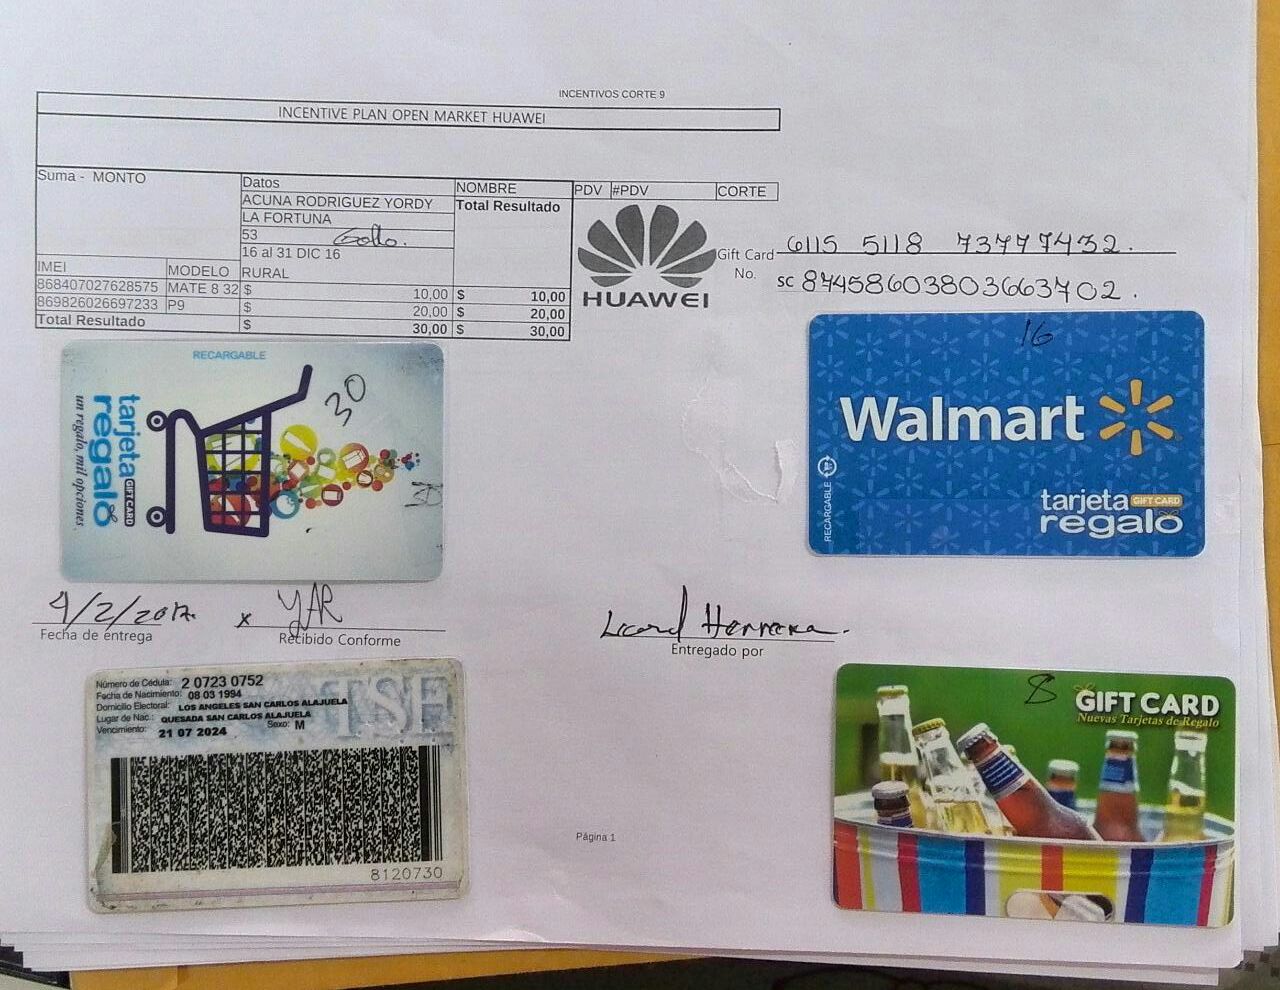 INCENTIVOS CORTE 9
INCENTIVE PLAN OPEN MARKET HUAWEI
Suma - MONTO
Datos
NOMBRE
PDV #PDV CORTE
ACUNA RODRIGUEZ YORDY
Total Resultado
LA FORTUNA
53 Gollo.
16 al 31 DIC 16
IMEI MODELO RURAL
868407027628575 MATE 8 32 $ 10,00 $ 10,00
869826026697233 P9 $ 20,00 $ 20,00
Total Resultado $ 30,00 $ 30,00
HUAWEI
Gift Card 6115 5118 73777432.
No. SC 874586038036637O2.
RECARGABLE
30
tarjeta GIFT CARD
regalo
un regalo, mil opciones.
16
Walmart
RECARGABLE
tarjeta GIFT CARD
regalo
4/2/2017. x YAR
Fecha de entrega Recibido Conforme
Herrera.
Entregado por
TSE
Número de Cédula: 2 0723 0752
Fecha de Nacimiento: 08 03 1994
Domicilio Electoral: LOS ANGELES SAN CARLOS ALAJUELA
Lugar de Nac.: QUESADA SAN CARLOS ALAJUELA
Sexo: M
Vencimiento: 21 07 2024
8120730
8
GIFT CARD
Nuevas Tarjetas de Regalo
Página 1